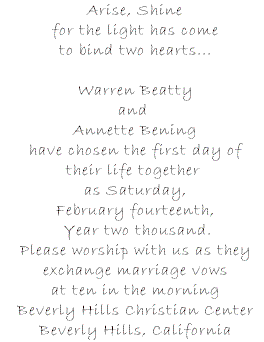 Arise, Shine
for the light has come
to bind two hearts...
Warren Beatty
and
Annette Bening
have chosen the first day of
their life together
as Saturday,
February fourteenth,
Year two thousand.
Please worship with us as they
exchange marriage vows
at ten in the morning
Beverly Hills Christian Center
Beverly Hills, California